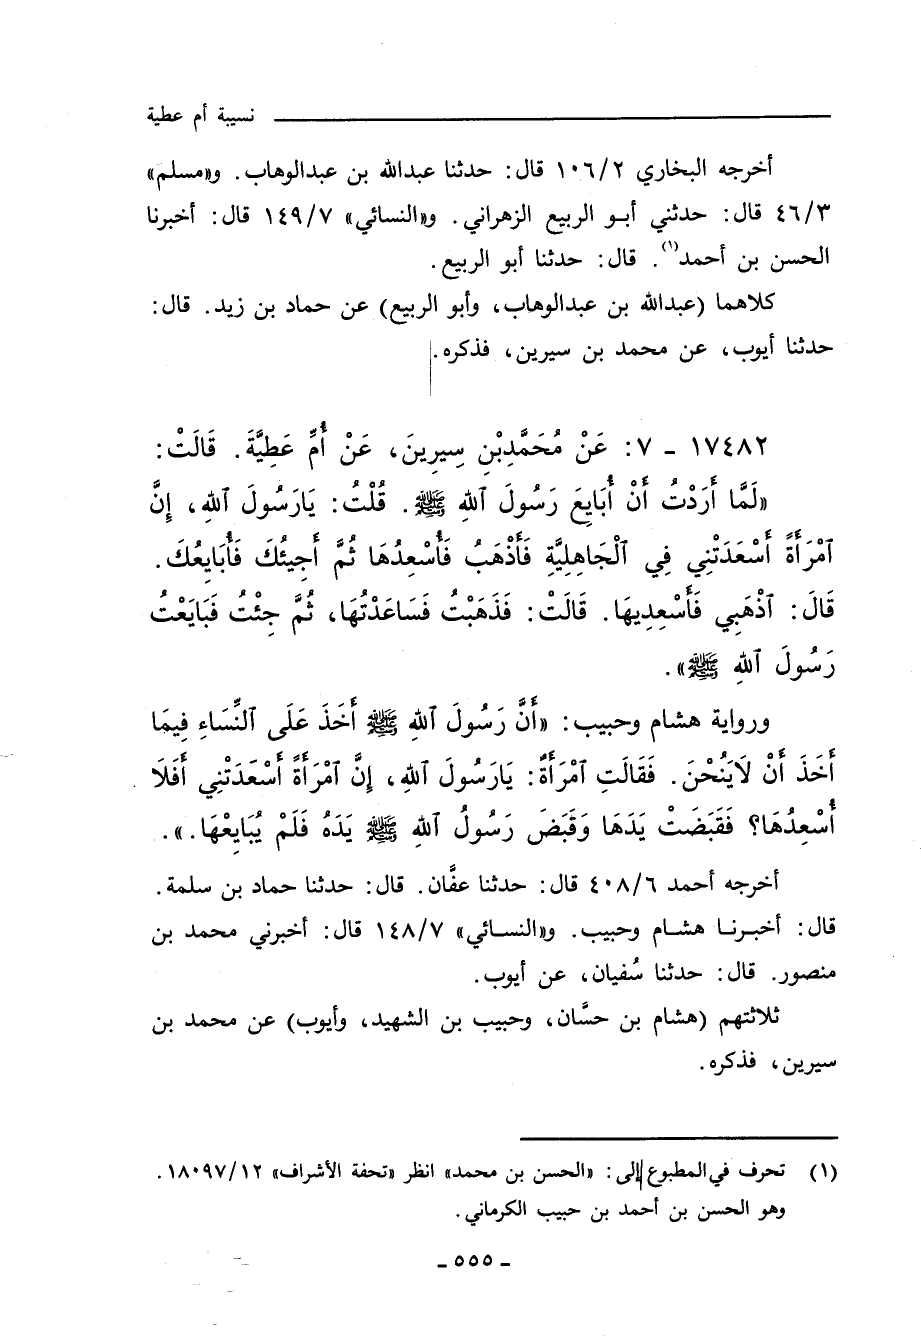 نسيبة أم عطية
أخرجه البخاري ١٠٦/٢ قال: حدثنا عبدالله بن عبدالوهاب. و«مسلم»
٤٦/٣ قال: حدثني أبو الربيع الزهراني. و«النسائي» ١٤٩/٧ قال: أخبرنا
الحسن بن أحمد(١). قال: حدثنا أبو الربيع.
كلاهما (عبدالله بن عبدالوهاب، وأبو الربيع) عن حماد بن زيد. قال:
حدثنا أيوب، عن محمد بن سيرين، فذكره.
١٧٤٨٢ - ٧: عَنْ مُحَمَّدِبْنِ سِيرِينَ، عَنْ أُمِّ عَطِيَّةَ. قَالَتْ:
«لَمَّا أَرَدْتُ أَنْ أُبَايِعَ رَسُولَ ٱللهِ ﷺ. قُلْتُ: يَارَسُولَ ٱللهِ، إِنَّ
ٱمْرَأَةً أَسْعَدَتْنِي فِي ٱلْجَاهِلِيَّةِ فَأَذْهَبُ فَأُسْعِدُهَا ثُمَّ أَجِيئُكَ فَأُبَايِعُكَ.
قَالَ: ٱذْهَبِي فَأَسْعِدِيهَا. قَالَتْ: فَذَهَبْتُ فَسَاعَدْتُهَا، ثُمَّ جِئْتُ فَبَايَعْتُ
رَسُولَ ٱللهِ ﷺ».
ورواية هشام وحبيب: «أَنَّ رَسُولَ ٱللهِ ﷺ أَخَذَ عَلَى ٱلنِّسَاءِ فِيمَا
أَخَذَ أَنْ لَايَنُحْنَ. فَقَالَتِ ٱمْرَأَةٌ: يَارَسُولَ ٱللهِ، إِنَّ ٱمْرَأَةً أَسْعَدَتْنِي أَفَلَا
أُسْعِدُهَا؟ فَقَبَضَتْ يَدَهَا وَقَبَضَ رَسُولُ ٱللهِ ﷺ يَدَهُ فَلَمْ يُبَايِعْهَا.».
أخرجه أحمد ٤٠٨/٦ قال: حدثنا عفَّان. قال: حدثنا حماد بن سلمة.
قال: أخبرنا هشام وحبيب. و«النسائي» ١٤٨/٧ قال: أخبرني محمد بن
منصور. قال: حدثنا سُفيان، عن أيوب.
ثلاثتهم (هشام بن حسَّان، وحبيب بن الشهيد، وأيوب) عن محمد بن
سيرين، فذكره.
(١) تحرف في المطبوع إلى: «الحسن بن محمد» انظر «تحفة الأشراف» ١٨٠٩٧/١٢.
وهو الحسن بن أحمد بن حبيب الكرماني.
- ٥٥٥ -